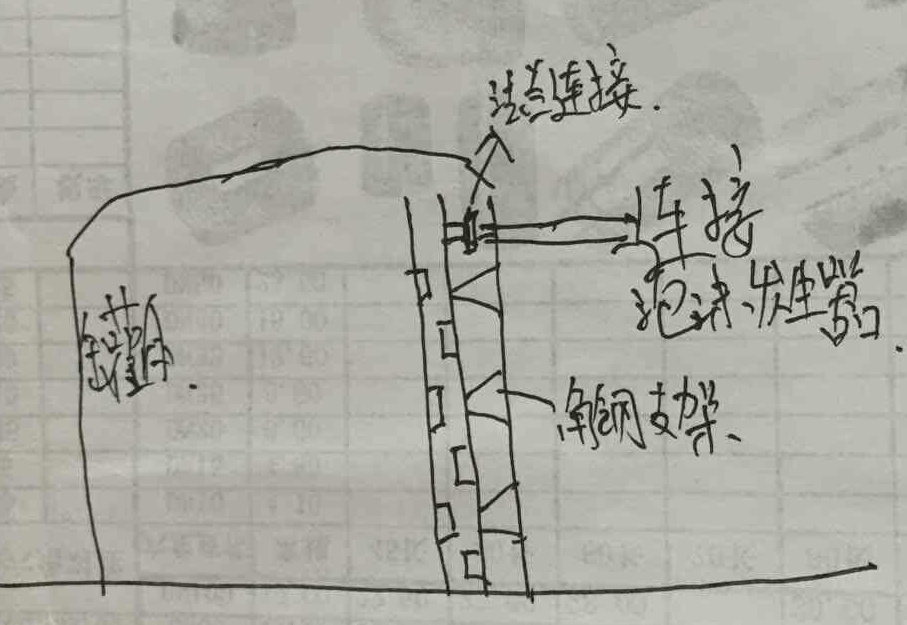 法兰连接.
连接
泡沫发生器口.
罐.
角钢支架、